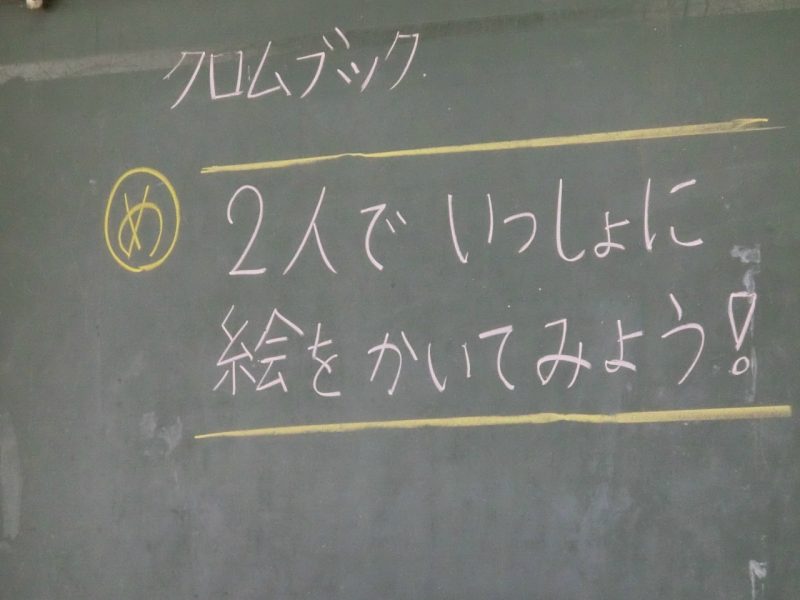 クロムブック
め 2人でいっしょに
絵をかいてみよう!